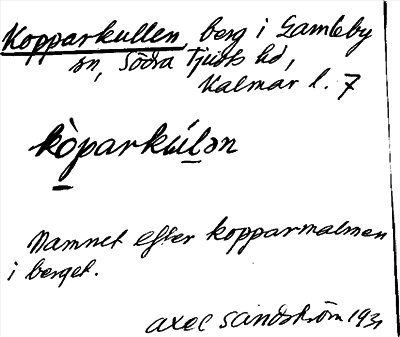 Kopparkullen, berg i Gamleby
sn, Södra Tjusts hd,
Kalmar l. 7
kòparkúlən
Namnet efter kopparmalmen
i berget.
Axel Sandström 1931